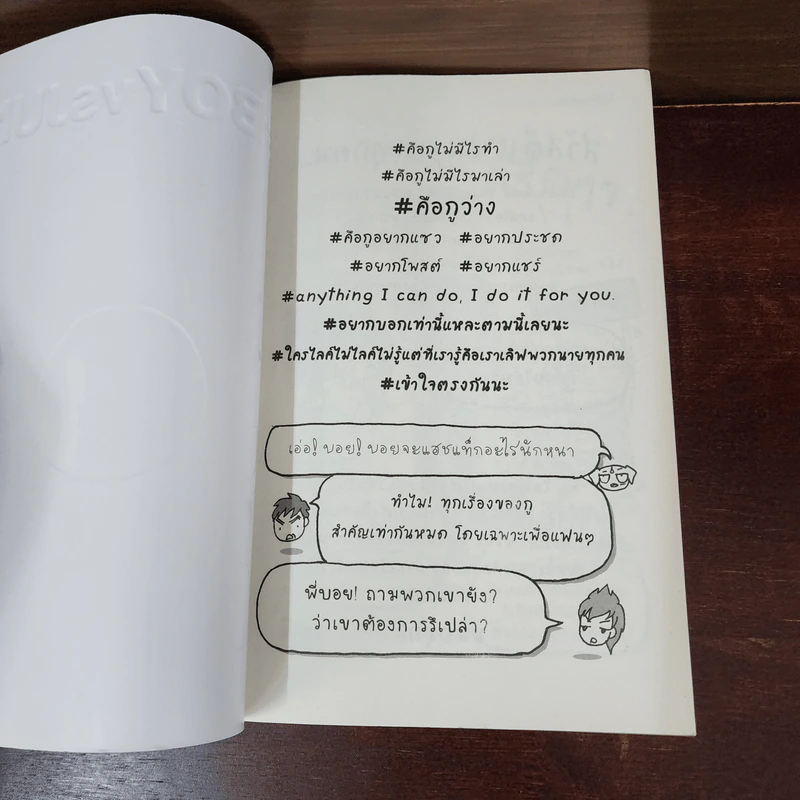 #คือกูไม่มีไรทำ
#คือกูไม่มีไรมาเล่า
#คือกูว่าง
#คือกูอยากแซว #อยากประชด
#อยากโพสต์ #อยากแชร์
#anything I can do, I do it for you.
#อยากบอกเท่านี้แหละตามนี้เลยนะ
#ใครไลค์ไม่ไลค์ไม่รู้แต่ที่เรารู้คือเราเลิฟพวกนายทุกคน
#เข้าใจตรงกันนะ
เอ่อ! บอย! บอยจะแฮชแท็กอะไรนักหนา
ทำไม! ทุกเรื่องของกู
สำคัญเท่ากันหมด โดยเฉพาะเพื่อแฟนๆ
พี่บอย! ถามพวกเขายัง?
ว่าเขาต้องการรึเปล่า?